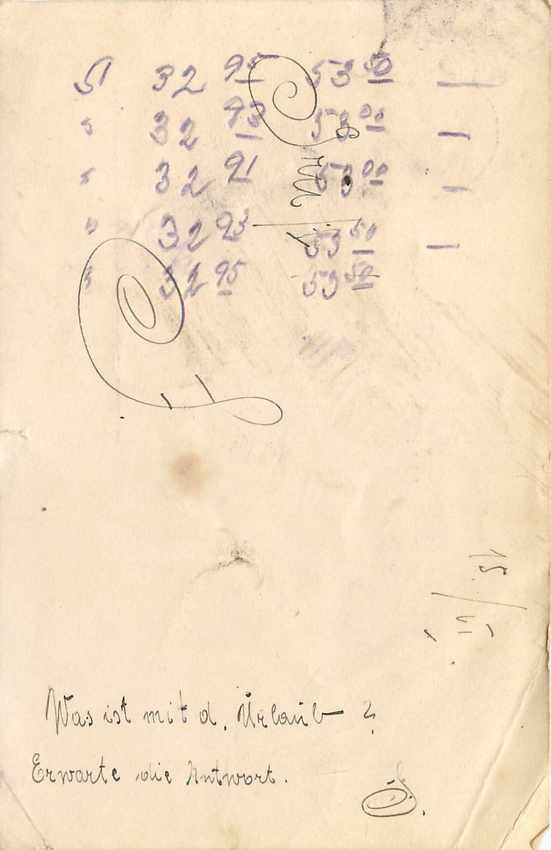 32 95 53 50 —
" 32 93 53 00 —
" 32 91 53 00 —
" 32 93 53 50 —
" 32 95 53 50
Was ist mit d. Urlaub?
Erwarte die Antwort.